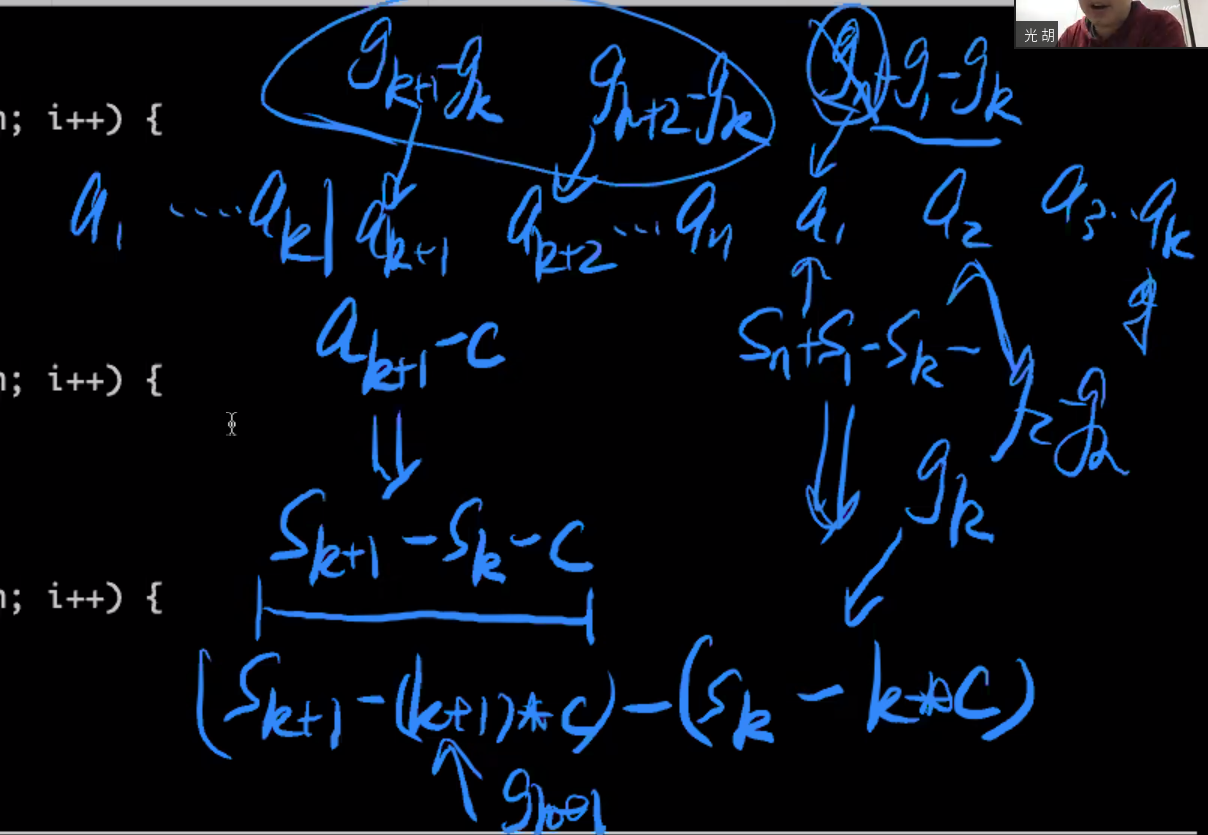 光 胡
g_{k+1}-g_k g_{k+2}-g_k g_n+g_1-g_k
n; i++) {
a_1 ....a_k| a_{k+1} a_{k+2}...a_n a_1 a_2 a_3..a_k
a_{k+1}-c S_n+S_1-S_k- g
n; i++) {
g_2-g_k
S_{k+1}-S_k-c g_k
n; i++) {
(S_{k+1}-(k+1)*c)-(S_k-k*c)
g_{k+1}